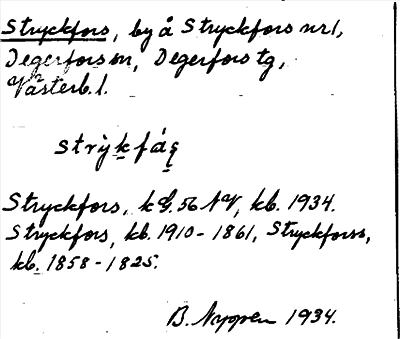 Stryckfors, by å Stryckfors nr 1,
Degerfors sn, Degerfors tg,
Västerb. l.
strỳkfás̨
Stryckfors, k G. 56 NV, kb. 1934.
Stryckfors, kb. 1910-1861, Stryckforss,
kb. 1858-1825.
B. Nyppen 1934.